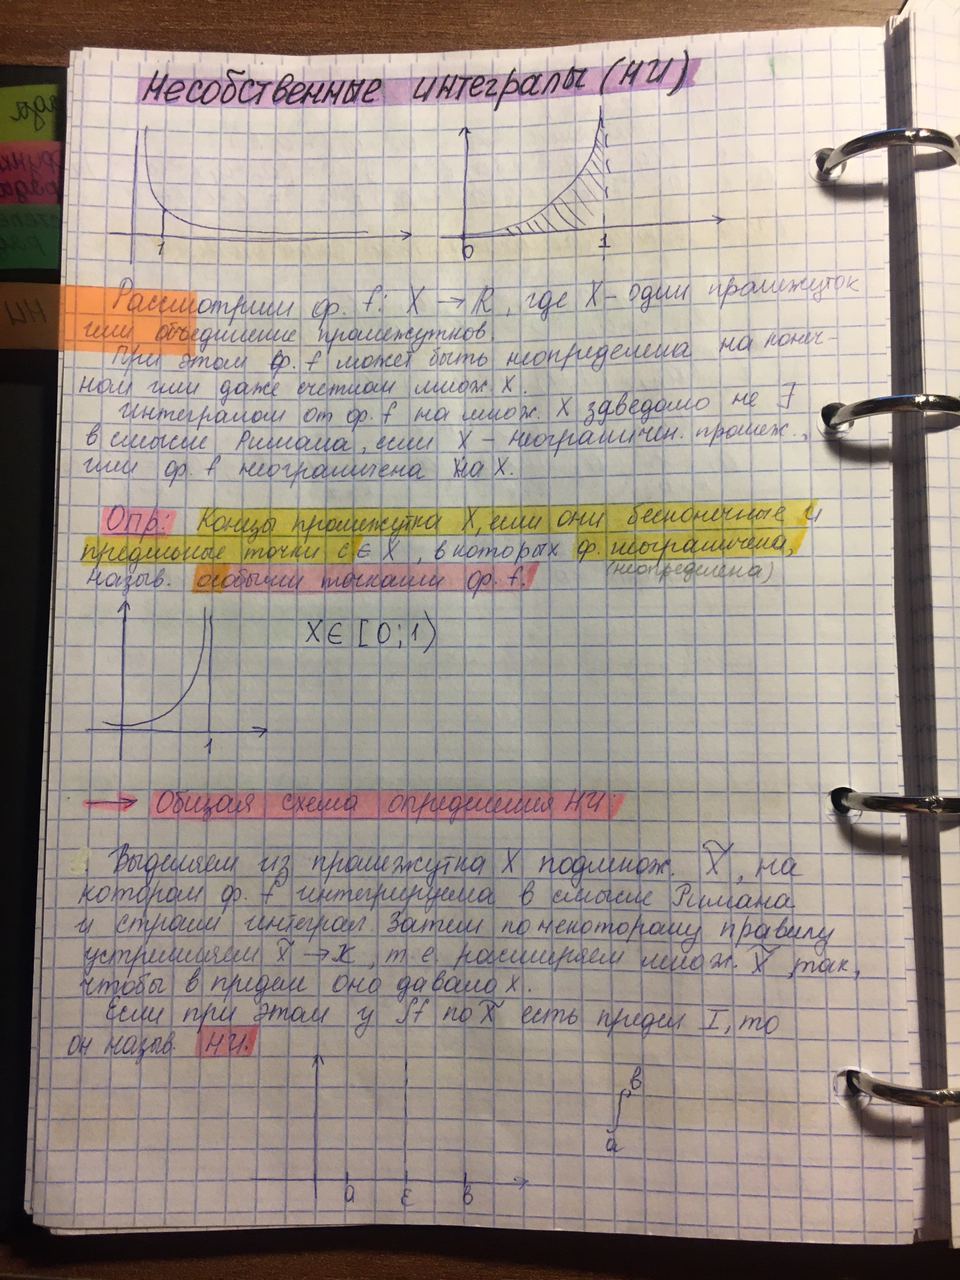 Несобственные интегралы (НИ)
1
0
1
Рассмотрим ф. f: X → R, где X - один промежуток
или объединение промежутков.
При этом ф. f может быть неопределена на конеч-
ном или даже счетном множ. X.
Интегралом от ф. f на множ. X заведомо не ∃
в смысле Римана, если X - неограничен. промеж.,
или ф. f неограничена на X.
Опр: Концы промежутка X, если они бесконечные и
предельные точки c ∈ X, в которых ф. неограничена,
(неопределена)
назыв. особыми точками ф. f.
X ∈ [0; 1)
1
→ Общая схема определения НИ:
Выделяем из промежутка X подмнож. X̃, на
котором ф. f интегрируема в смысле Римана
и строим интеграл. Затем по некоторому правилу
устремляем X̃ → X, т.е. расширяем множ. X̃ так,
чтобы в пределе оно давало X.
Если при этом у ∫f по X̃ есть предел I, то
он назыв. НИ.
b
∫
a
a c b